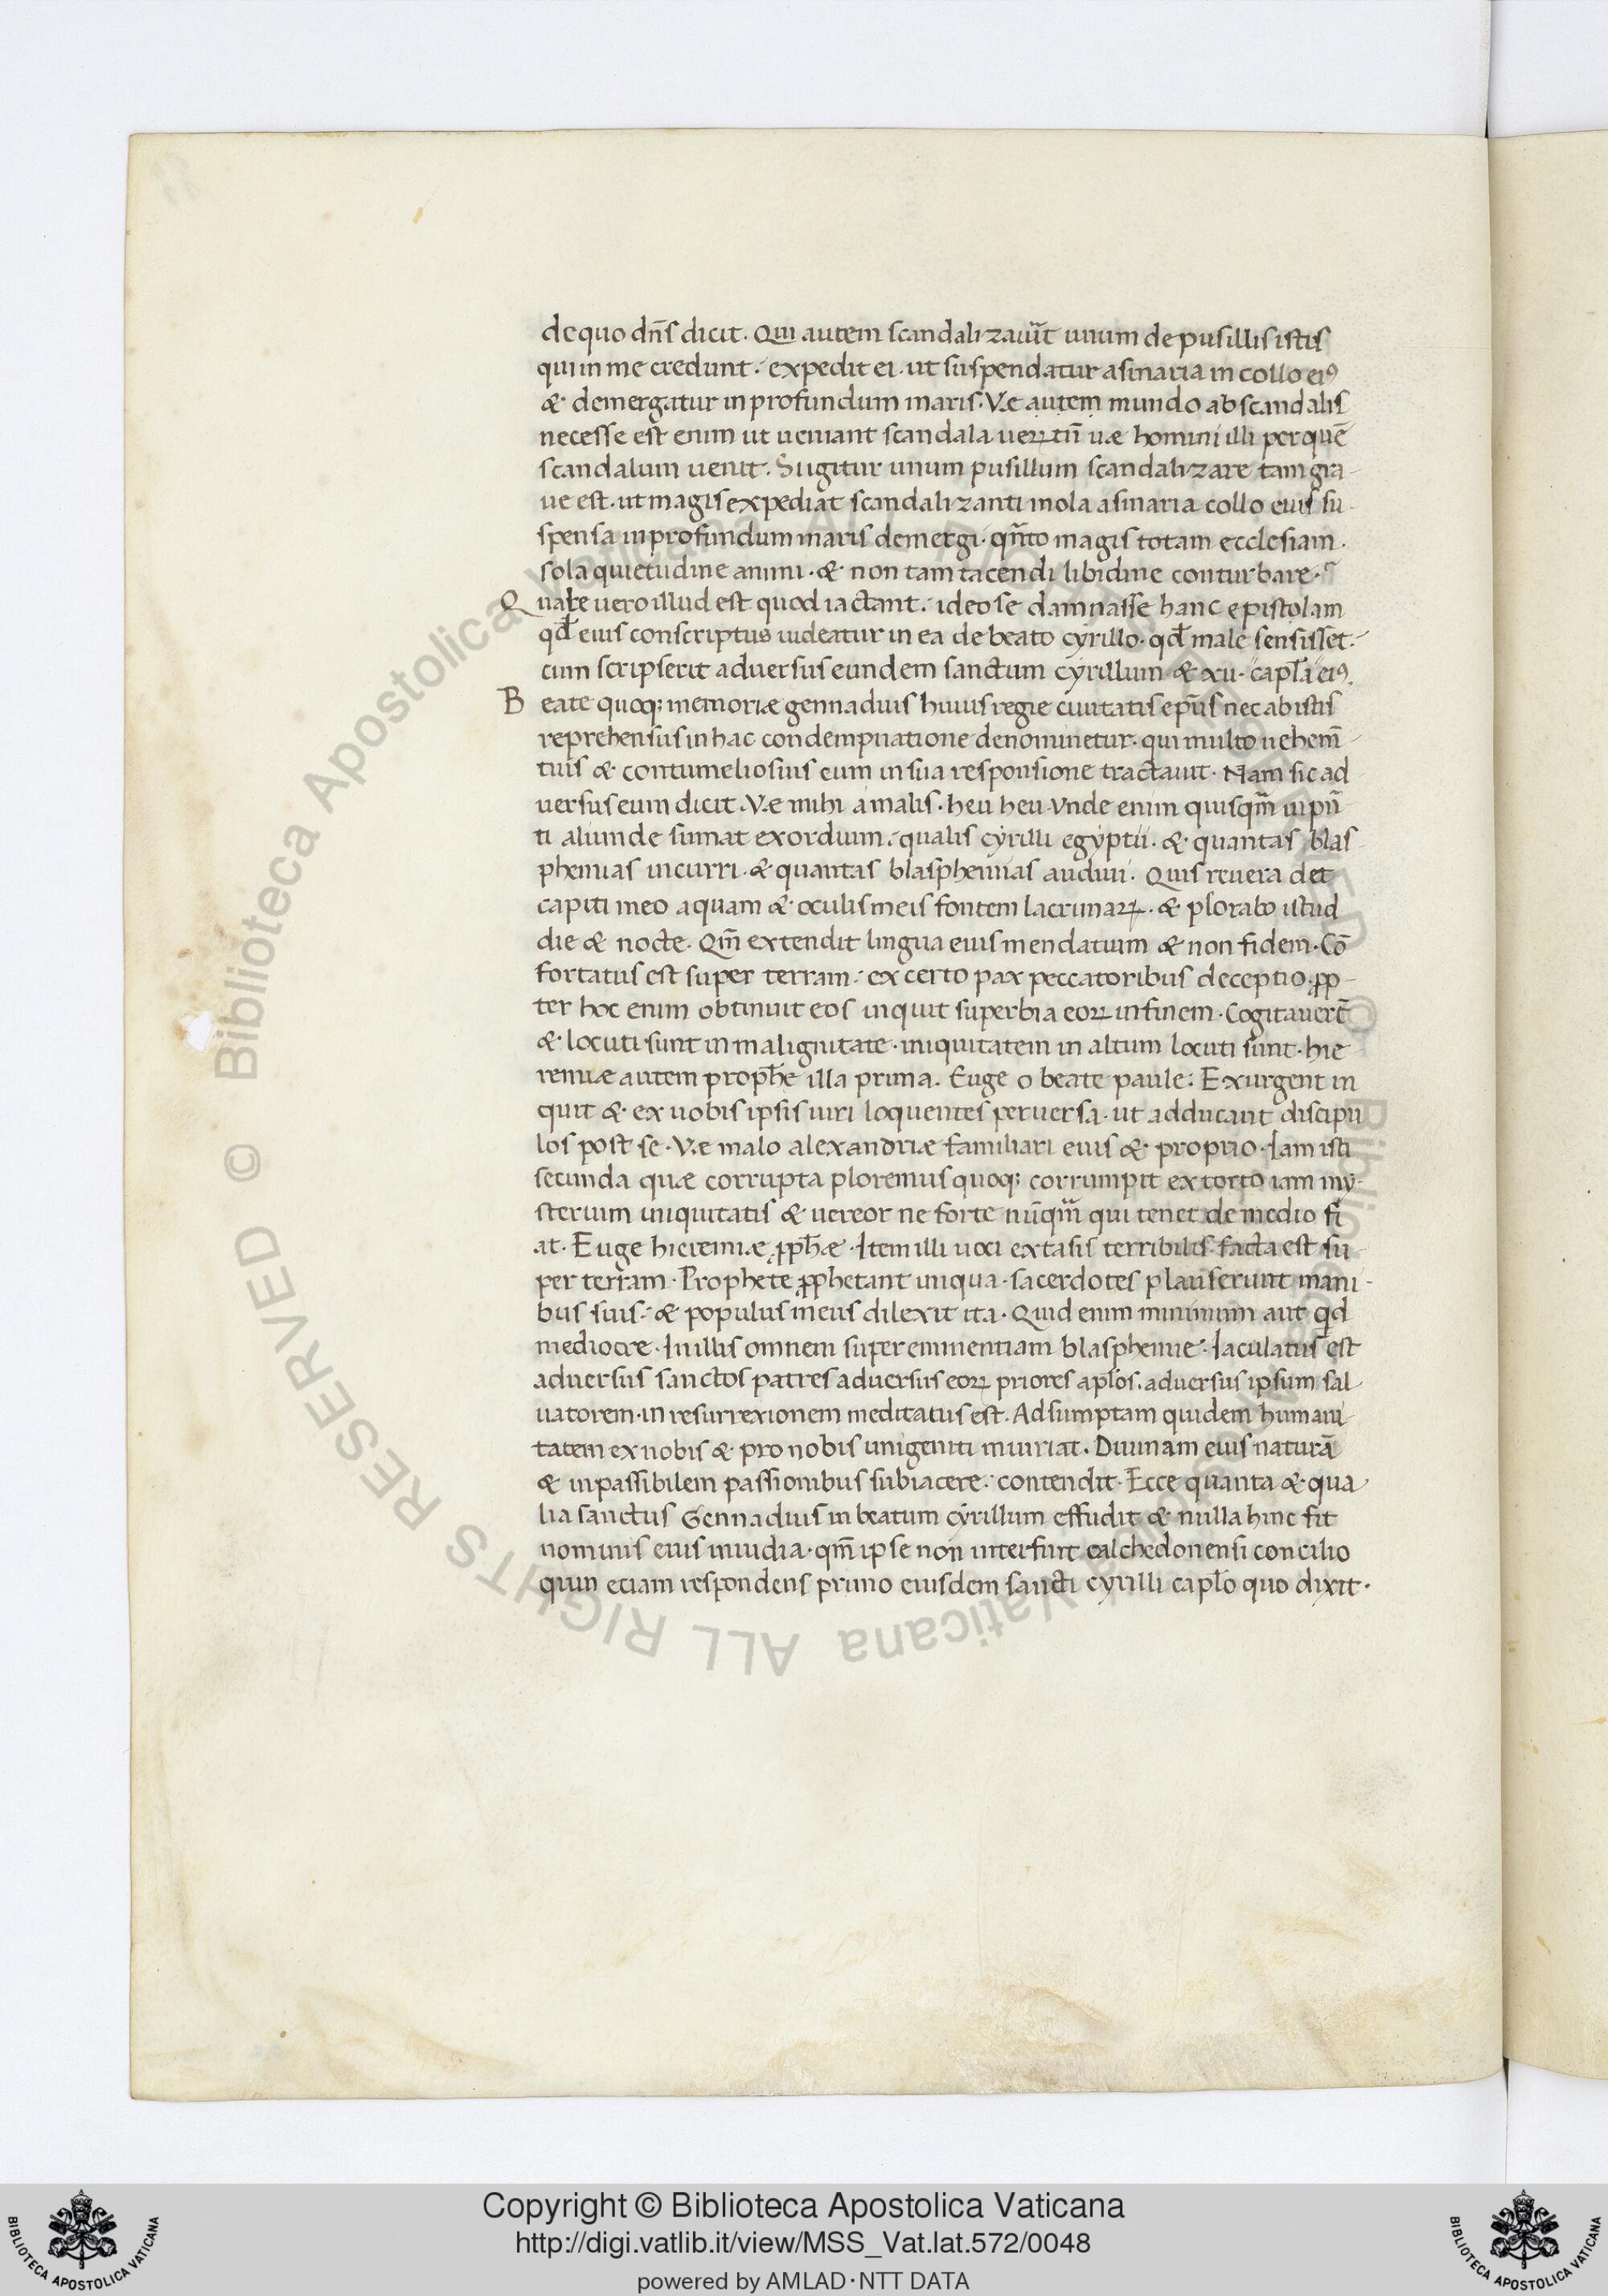 de quo dn̄s dicit. Qui autem scandalizaūt unum de pusillis istis
qui in me credunt. expedit ei. ut suspendatur asinaria in collo eiꝰ
& demergatur in profundum maris. Væ autem mundo ab scandalis
necesse est enim ut ueniant scandala ueꝝ tn̄ uæ homini illi per quē
scandalum uenit. Si igitur unum pusillum scandalizare tam gra-
ue est. ut magis expediat scandalizanti mola asinaria collo eius su-
spensa in profundum maris demergi. qn̄to magis totam ecclesiam.
sola quietudine animi. & non tam tacendi libidine conturbare.
Quale uero illud est quod iactant. ideo se damnasse hanc epistolam
qđ eius conscriptus uideatur in ea de beato cyrillo. qđ male sensisset.
cum scripserit aduersus eundem sanctum cyrillum & xii. capl̄a eiꝰ.
Beate quoq; memoriæ gennadius huius regie ciuitatis ep̄us nec ab istis
reprehensus in hac condempnatione denominetur. qui multo uehem̄-
tius & contumeliosius eum in sua responsione tractauit. Nam sic ad
uersus eum dicit. Væ mihi a malis. heu heu. Vnde enim quisqm̄ uipn̄-
ti aliunde sumat exordium. qualis cyrilli egyptii. & quantas blas-
phemias incurri. & quantas blasphemias audiui. Quis reuera det
capiti meo aquam & oculis meis fontem lacrimaꝝ. & plorabo istud
die & nocte. Qm̄ extendit lingua eius mendatium & non fidem. Cō
fortatus est super terram. ex certo pax peccatoribus deceptio. ꝓp-
ter hoc enim obtinuit eos inquit superbia eoꝝ in finem. Cogitauer̄t
& locuti sunt in malignitate. iniquitatem in altum locuti sunt. hie
remiæ autem proph̄e illa prima. Euge o beate paule. Exurgent in
quit & ex uobis ipsis uiri loquentes peruersa. ut adducant discipu
los post se. Væ malo alexandriæ familiari eius & proprio. Iam isti
secunda quæ corrupta ploremus quoq; corrumpit ex torto iam my-
sterium iniquitatis & uereor ne forte nūqm̄ qui tenet de medio fi
at. Euge hieremiæ ꝓph̄æ. Item illi uoci extasis terribilis facta est su
per terram. Prophete ꝓphetant iniqua. sacerdotes plauserunt mani-
bus suis. & populus meus dilexit ita. Quid enim minimum aut qd
mediocre. In illis omnem supereminentiam blasphemie. Iaculatus est
aduersus sanctos patres aduersus eoꝝ priores apl̄os. aduersus ipsum sal
uatorem. in resurrexionem meditatus est. Adsumptam quidem humani-
tatem ex nobis & pro nobis unigeniti iniuriat. Diuinam eius naturā
& inpassibilem passionibus subiacere. contendit. Ecce quanta & qua
lia sanctus Gennadius in beatum cyrillum effudit & nulla hinc fit
nominis eius inuidia. qm̄ ipse non interfuit calchedonensi concilio
quin etiam respondens primo eiusdem sancti cyrilli capl̄o quo dixit.
© Biblioteca Apostolica Vaticana ALL RIGHTS RESERVED
Copyright © Biblioteca Apostolica Vaticana
http://digi.vatlib.it/view/MSS_Vat.lat.572/0048
powered by AMLAD·NTT DATA
BIBLIOTECA APOSTOLICA VATICANA
BIBLIOTECA APOSTOLICA VATICANA